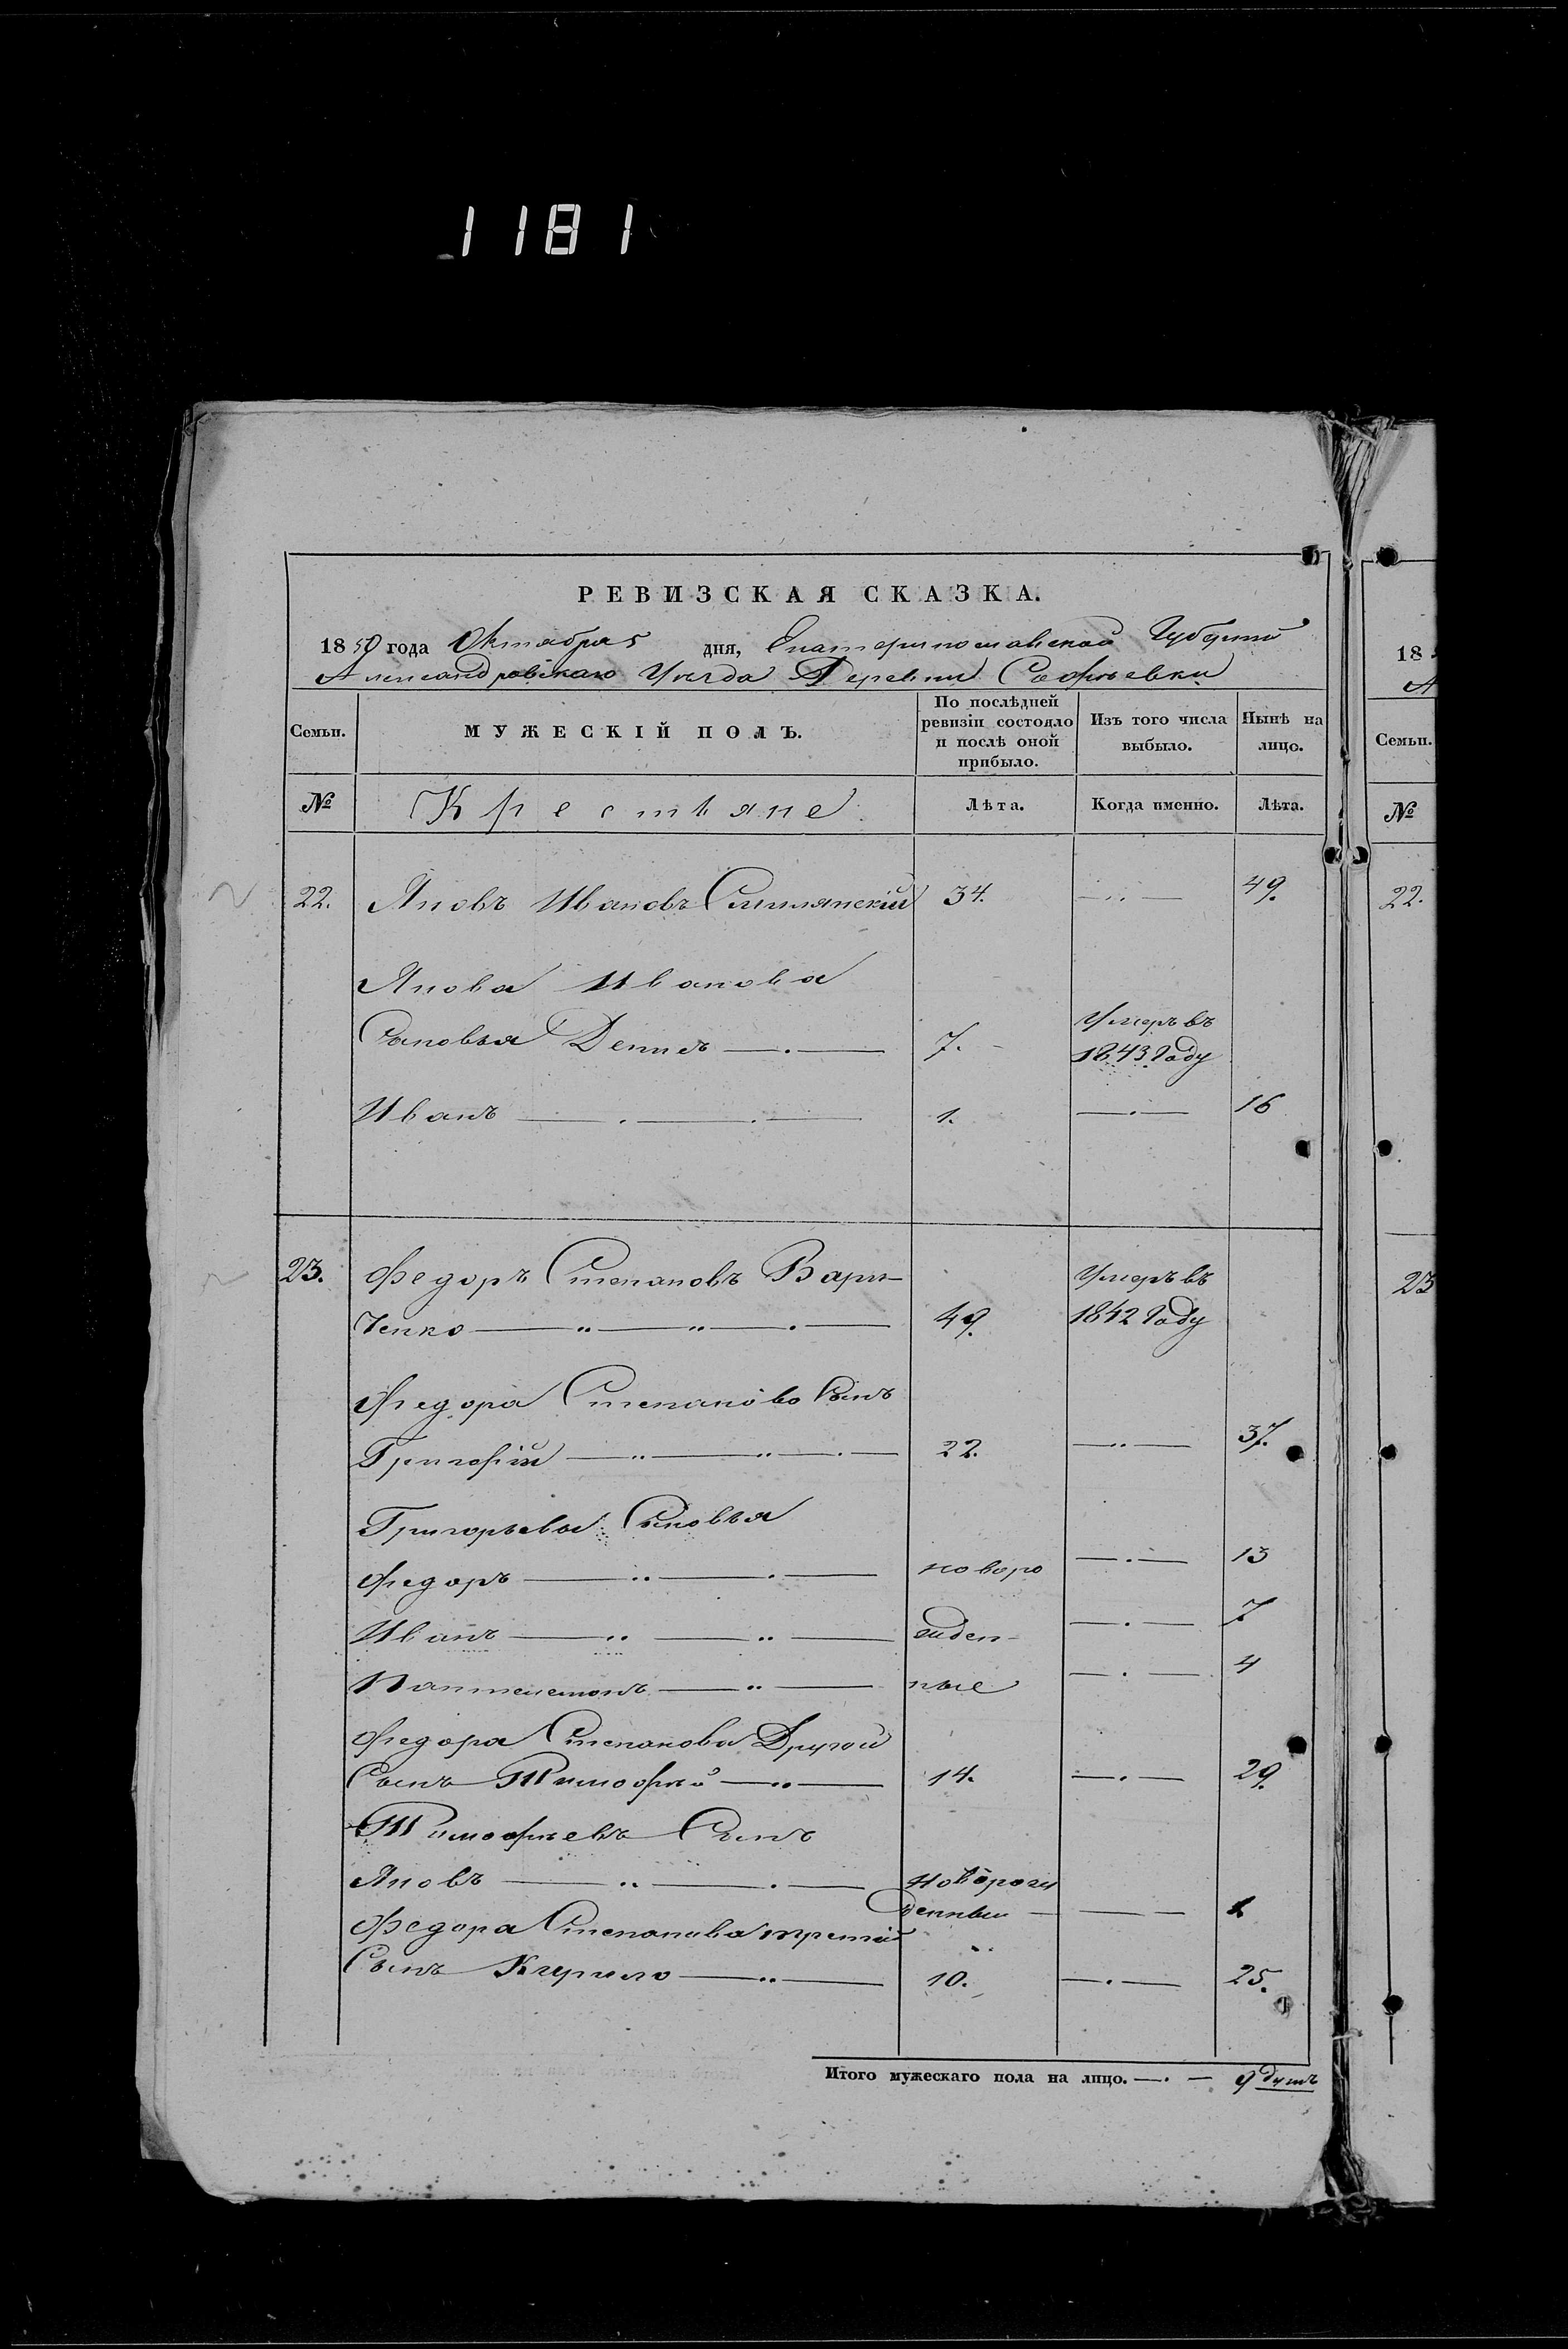 1181
РЕВИЗСКАЯ СКАЗКА.
1850 года Октября 5 дня, Екатеринославской Губерніи
Александровскаго Уѣзда Деревни Софіевки
Семьи. МУЖЕСКІЙ ПОЛЪ. По послѣдней ревизіи состояло и послѣ оной прибыло. Изъ того числа выбыло. Нынѣ на лицо.
№ Крестьяне Лѣта. Когда именно. Лѣта.
22. Яковъ Ивановъ 34. 49.
Якова Иванова
Умеръ въ
Сыновья Денисъ 7. 1843 Году
Иванъ 1. 16
23. Федоръ Степановъ Вари- Умеръ въ
ченко 49. 1842 Году
Федора Степаново Сынъ
Григорій 22. 37.
Григорьевы Сыновья
Федоръ новоро 13
Иванъ жден- 7
Пантелемонъ ные 4
Федора Степанова Другой
Сынъ Тимофѣй 14. 29.
Тимофѣевъ Сынъ
Яковъ новорож
денный 1
Федора Степанова третій
Сынъ Кирило 10. 25.
Итого мужескаго пола на лицо. 9 душъ
18
А
Семьи.
№
22.
23